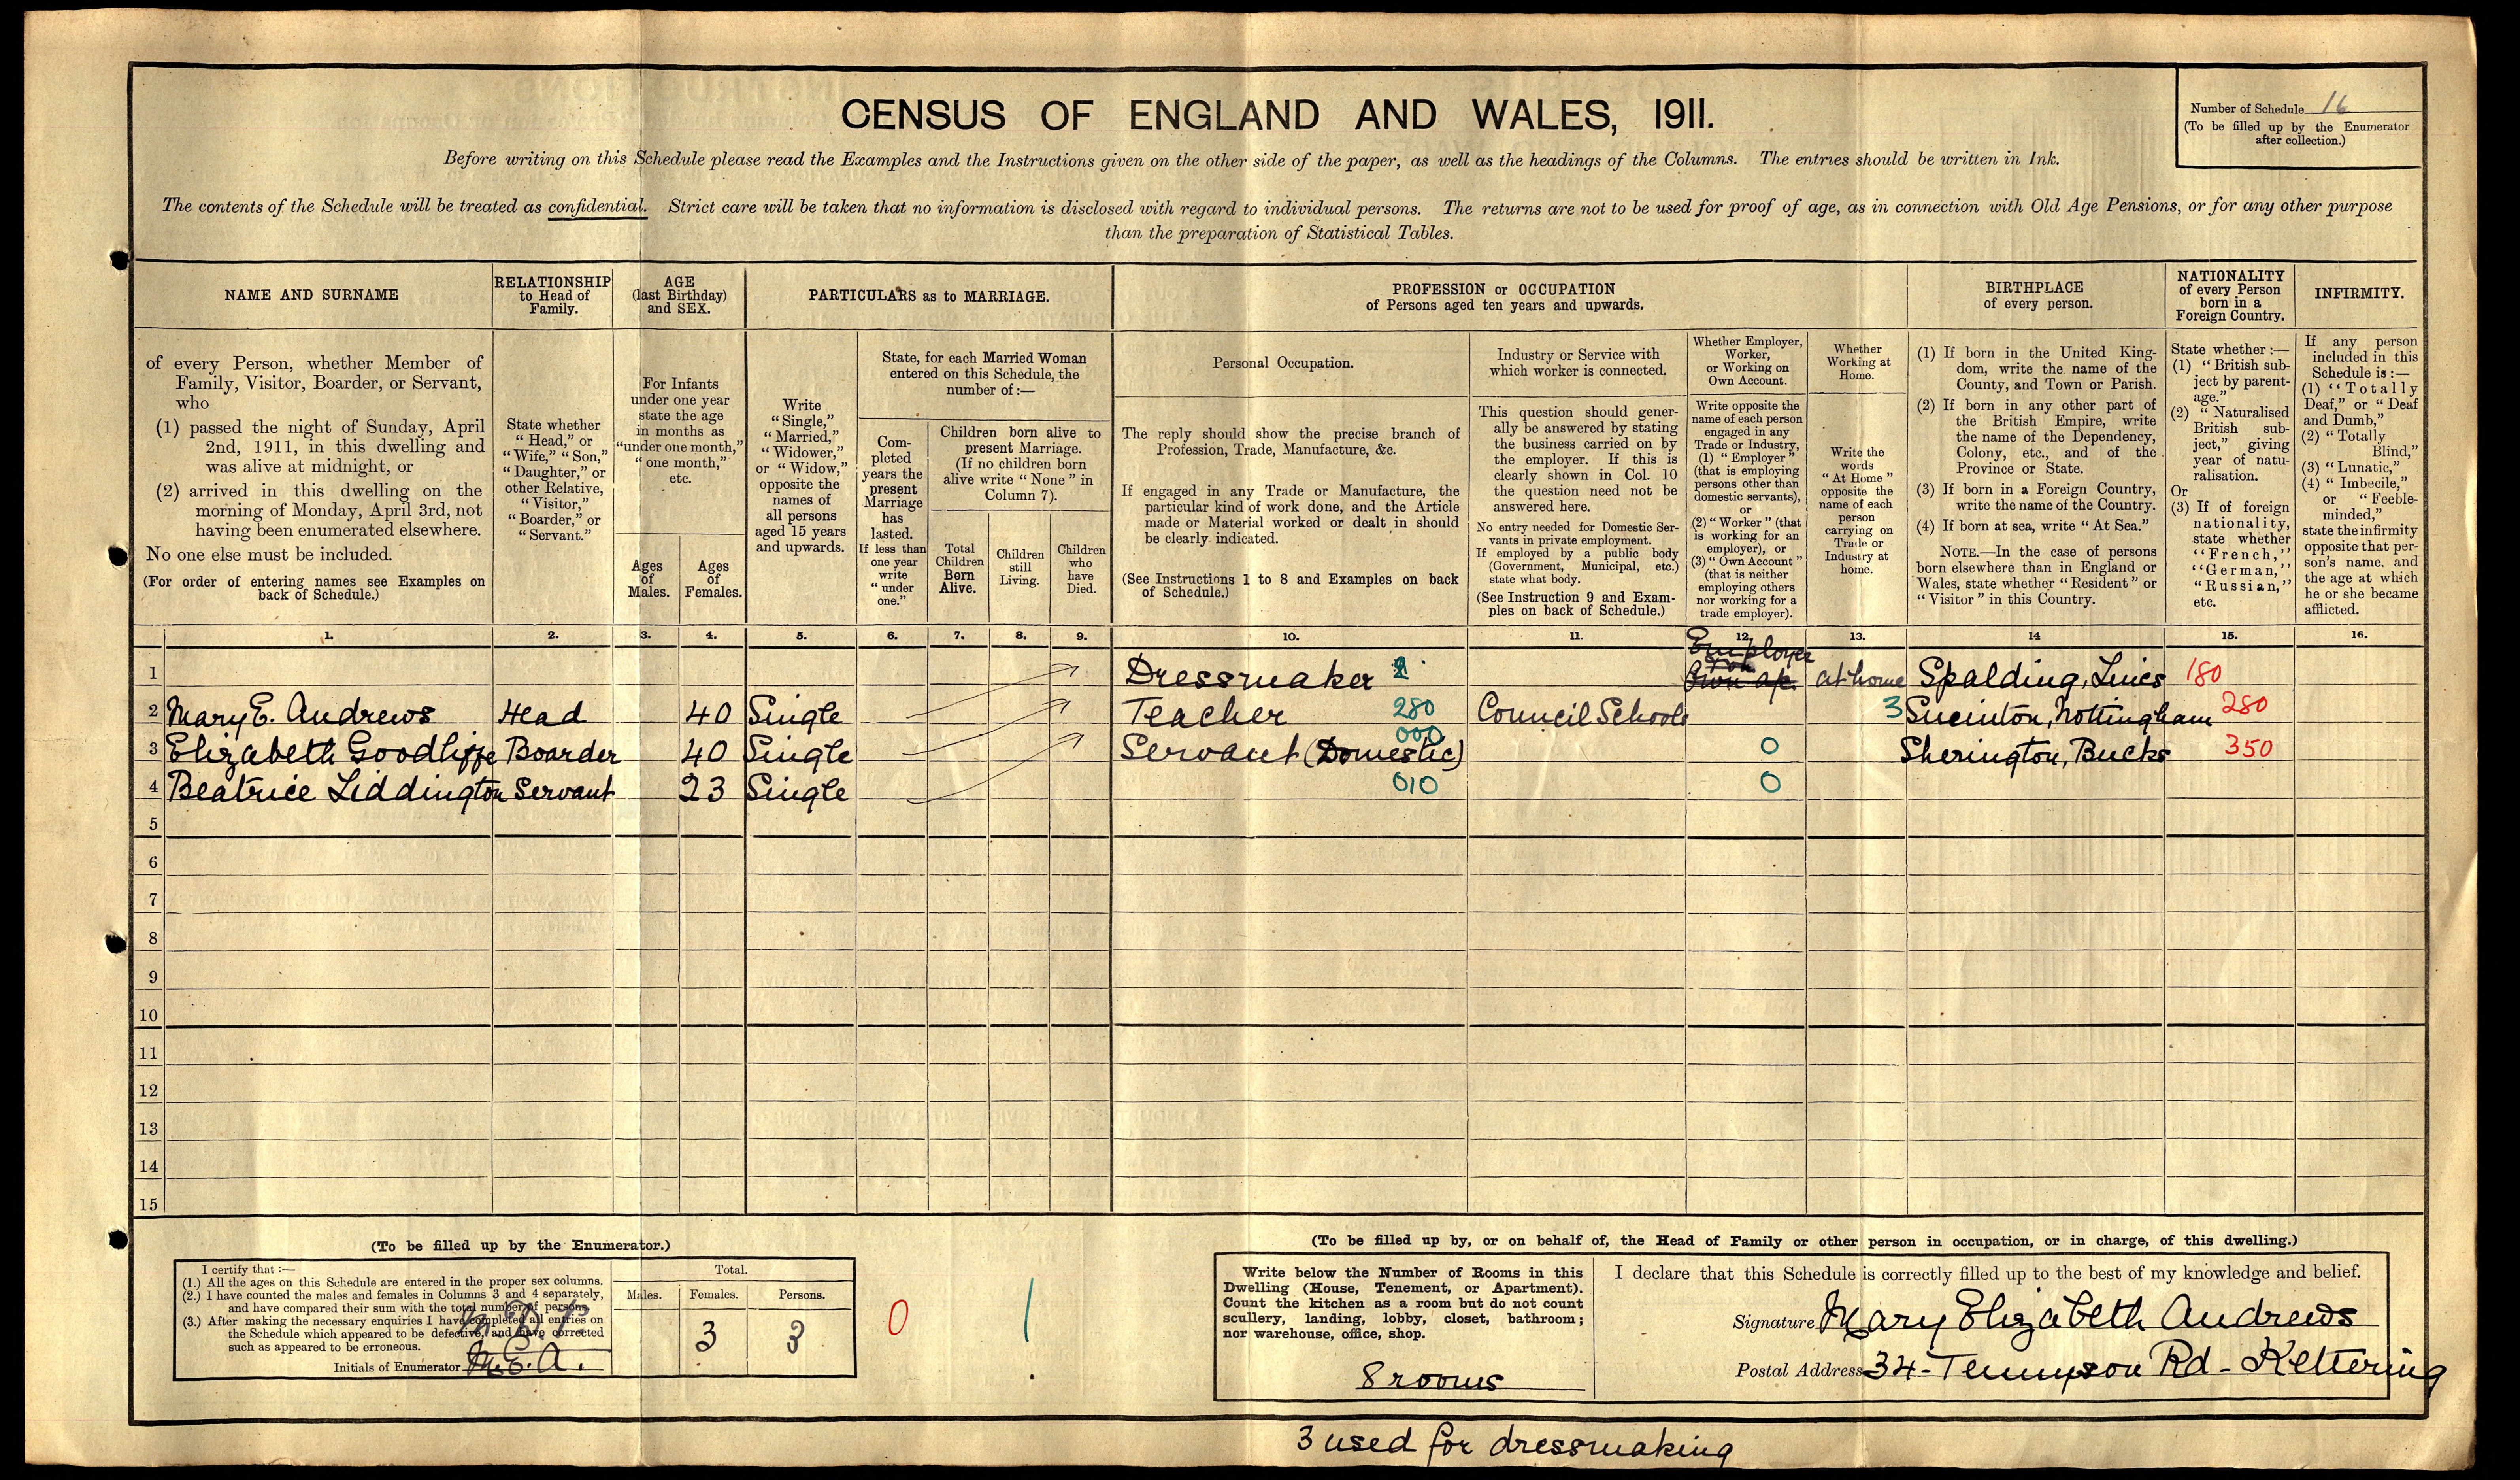 CENSUS OF ENGLAND AND WALES, 1911.
Number of Schedule 16
(To be filled up by the Enumerator
after collection.)
Before writing on this Schedule please read the Examples and the Instructions given on the other side of the paper, as well as the headings of the Columns. The entries should be written in Ink.
The contents of the Schedule will be treated as confidential. Strict care will be taken that no information is disclosed with regard to individual persons. The returns are not to be used for proof of age, as in connection with Old Age Pensions, or for any other purpose
than the preparation of Statistical Tables.
NAME AND SURNAME
of every Person, whether Member of
Family, Visitor, Boarder, or Servant,
who
(1) passed the night of Sunday, April
2nd, 1911, in this dwelling and
was alive at midnight, or
(2) arrived in this dwelling on the
morning of Monday, April 3rd, not
having been enumerated elsewhere.
No one else must be included.
(For order of entering names see Examples on
back of Schedule.)
RELATIONSHIP
to Head of
Family.
State whether
"Head," or
"Wife," "Son,"
"Daughter," or
other Relative,
"Visitor,"
"Boarder," or
"Servant."
AGE
(last Birthday)
and SEX.
For Infants
under one year
state the age
in months as
"under one month,"
"one month,"
etc.
Ages
of
Males.
Ages
of
Females.
PARTICULARS as to MARRIAGE.
Write
"Single,"
"Married,"
"Widower,"
or "Widow,"
opposite the
names of
all persons
aged 15 years
and upwards.
State, for each Married Woman
entered on this Schedule, the
number of :—
Com-
pleted
years the
present
Marriage
has
lasted.
If less than
one year
write
"under
one."
Children born alive to
present Marriage.
(If no children born
alive write "None" in
Column 7).
Total
Children
Born
Alive.
Children
still
Living.
Children
who
have
Died.
PROFESSION or OCCUPATION
of Persons aged ten years and upwards.
Personal Occupation.
The reply should show the precise branch of
Profession, Trade, Manufacture, &c.
If engaged in any Trade or Manufacture, the
particular kind of work done, and the Article
made or Material worked or dealt in should
be clearly indicated.
(See Instructions 1 to 8 and Examples on back
of Schedule.)
Industry or Service with
which worker is connected.
This question should gener-
ally be answered by stating
the business carried on by
the employer. If this is
clearly shown in Col. 10
the question need not be
answered here.
No entry needed for Domestic Ser-
vants in private employment.
If employed by a public body
(Government, Municipal, etc.)
state what body.
(See Instruction 9 and Exam-
ples on back of Schedule.)
Whether Employer,
Worker,
or Working on
Own Account.
Write opposite the
name of each person
engaged in any
Trade or Industry,
(1) "Employer"
(that is employing
persons other than
domestic servants),
or
(2) "Worker" (that
is working for an
employer), or
(3) "Own Account"
(that is neither
employing others
nor working for a
trade employer).
Whether
Working at
Home.
Write the
words
"At Home"
opposite the
name of each
person
carrying on
Trade or
Industry at
home.
BIRTHPLACE
of every person.
(1) If born in the United King-
dom, write the name of the
County, and Town or Parish.
(2) If born in any other part of
the British Empire, write
the name of the Dependency,
Colony, etc., and of the
Province or State.
(3) If born in a Foreign Country,
write the name of the Country.
(4) If born at sea, write "At Sea."
NOTE.—In the case of persons
born elsewhere than in England or
Wales, state whether "Resident" or
"Visitor" in this Country.
NATIONALITY
of every Person
born in a
Foreign Country.
State whether :—
(1) "British sub-
ject by parent-
age."
(2) "Naturalised
British sub-
ject," giving
year of natu-
ralisation.
Or
(3) If of foreign
nationality,
state whether
"French,"
"German,"
"Russian,"
etc.
INFIRMITY.
If any person
included in this
Schedule is :—
(1) "Totally
Deaf," or "Deaf
and Dumb,"
(2) "Totally
Blind,"
(3) "Lunatic,"
(4) "Imbecile,"
or "Feeble-
minded,"
state the infirmity
opposite that per-
son's name, and
the age at which
he or she became
afflicted.
1. 2. 3. 4. 5. 6. 7. 8. 9. 10. 11. 12. 13. 14 15. 16.
1 Dressmaker Employer at home Spalding, Lincs 180
2 Mary E. Andrews Head 40 Single Teacher 280 Council Schools 3 Sneinton, Nottingham 280
3 Elizabeth Goodliffe Boarder 40 Single Servant (Domestic) 000 0 Sherington, Bucks 350
4 Beatrice Liddington Servant 23 Single 010 0
5
6
7
8
9
10
11
12
13
14
15
(To be filled up by the Enumerator.)
I certify that :—
(1.) All the ages on this Schedule are entered in the proper sex columns.
(2.) I have counted the males and females in Columns 3 and 4 separately,
and have compared their sum with the total number of persons.
(3.) After making the necessary enquiries I have completed all entries on
the Schedule which appeared to be defective, and have corrected
such as appeared to be erroneous.
Initials of Enumerator M.E.A.
Total.
Males. Females. Persons.
3 3
0
(To be filled up by, or on behalf of, the Head of Family or other person in occupation, or in charge, of this dwelling.)
Write below the Number of Rooms in this
Dwelling (House, Tenement, or Apartment).
Count the kitchen as a room but do not count
scullery, landing, lobby, closet, bathroom;
nor warehouse, office, shop.
8 rooms
I declare that this Schedule is correctly filled up to the best of my knowledge and belief.
Signature Mary Elizabeth Andrews
Postal Address 34 - Tennyson Rd - Kettering
3 used for dressmaking